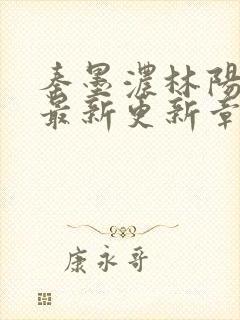 秦墨濃林陽
最新更新章
康永哥